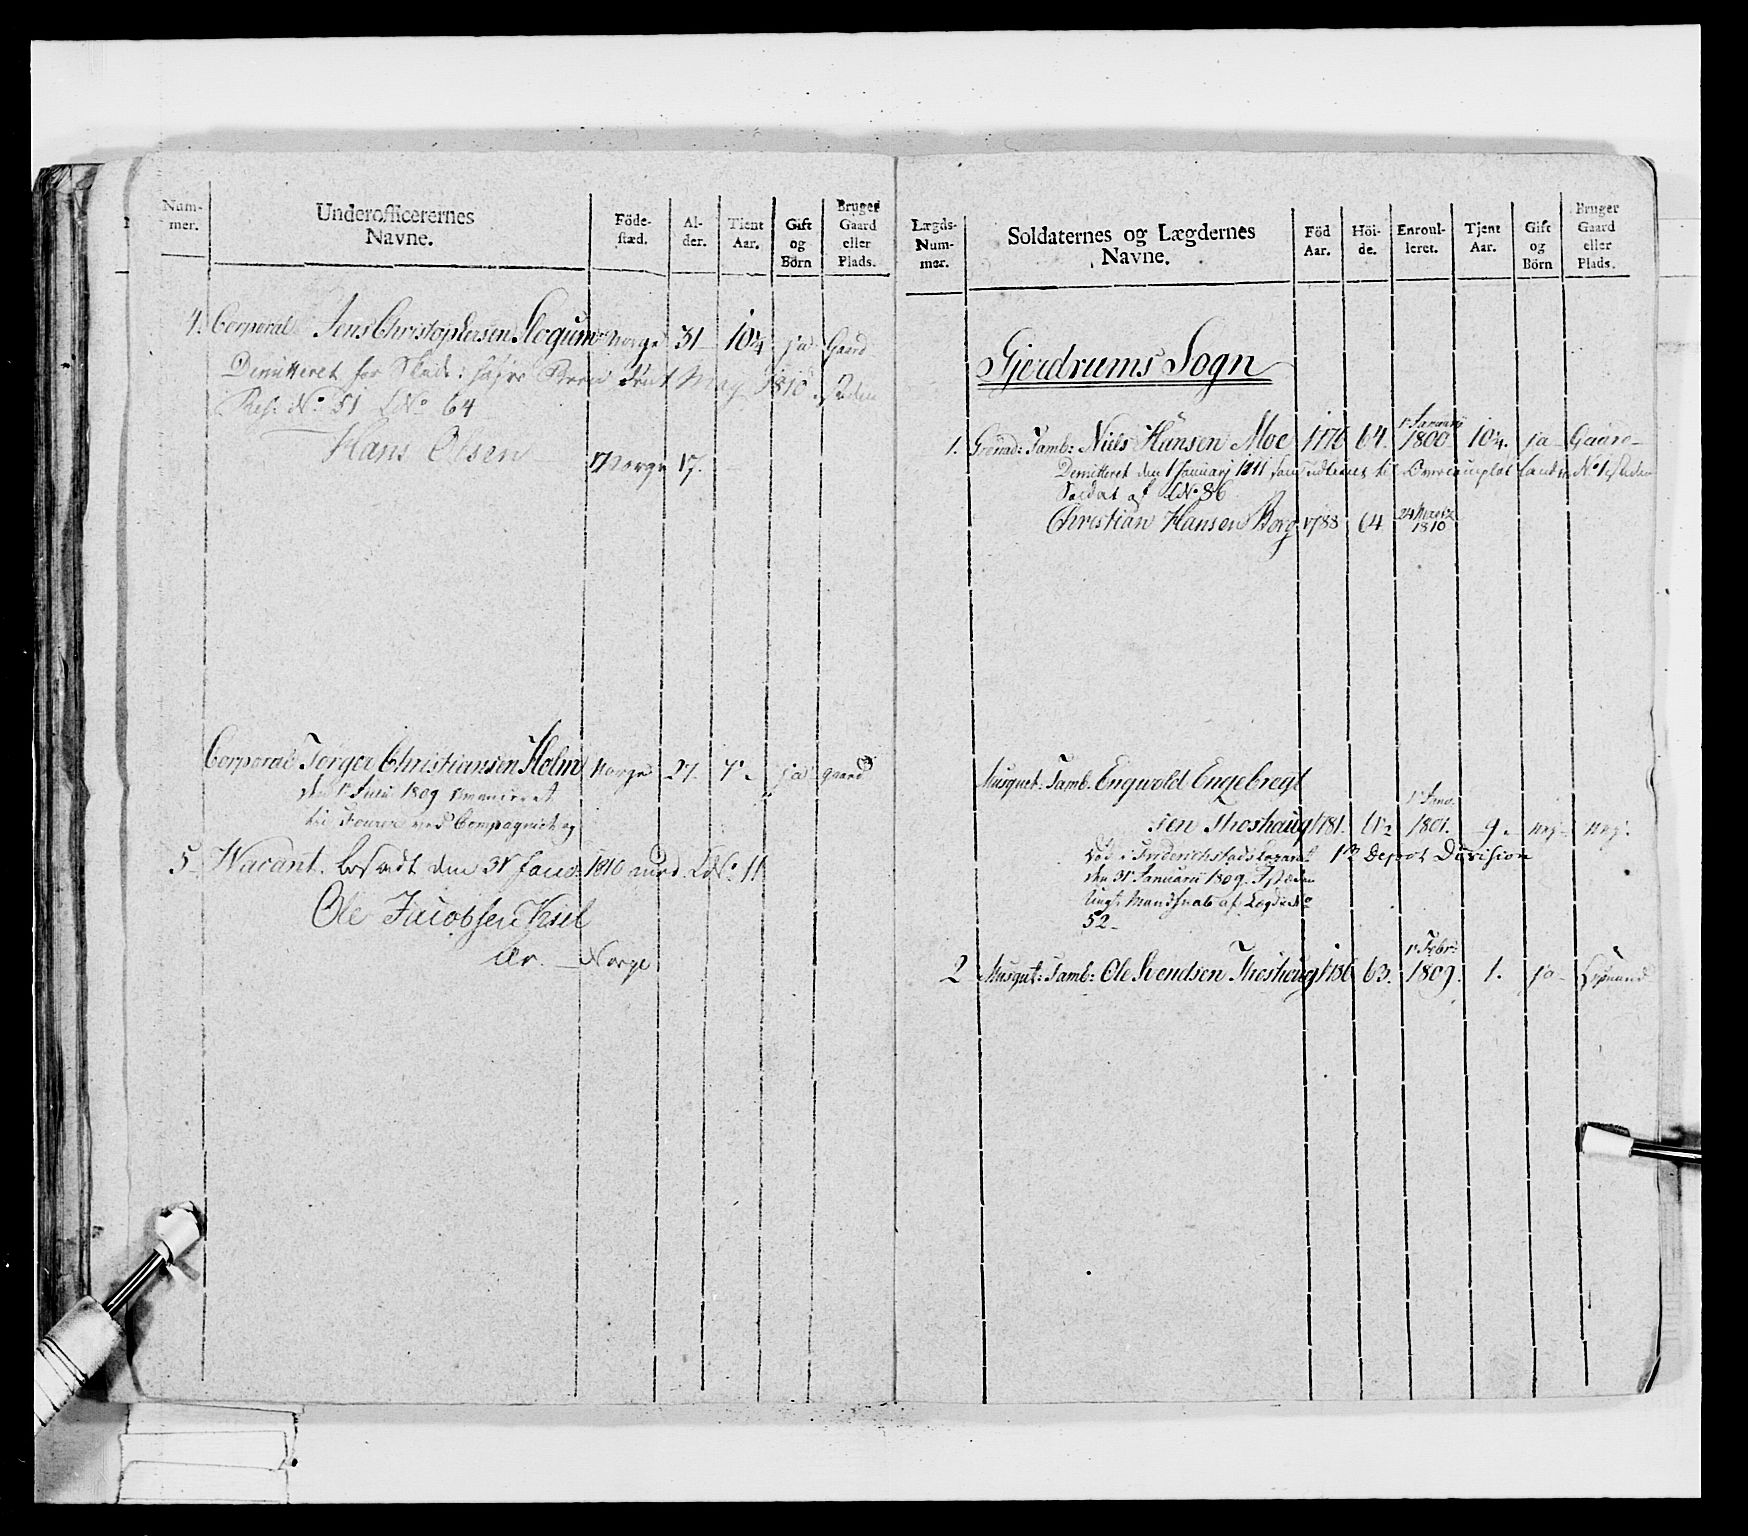 Num-
mer.
Underofficerernes
Navne.
Föde-
stæd.
Al-
der.
Tient
Aar.
Gift
og
Börn
Bruger
Gaard
eller
Plads.
4. Corporal Jens Christophersen Slogum Norge 31 10¼ ja Gaard
Demitteret for Skade i høyre May 1810
No 51 LNo 64
Hans Olsen Norge 17.
Corporal Torger Christiansen Holm Norge 27. 7. ja gaard
den 1 Juni 1809
til Fourer ved Compagniet og
5 Wacant. besadt den 31 1810 med LNo: 11
Ole Jacobsen
Norge
Lægds-
Num-
mer.
Soldaternes og Lægdernes
Navne.
Föd
Aar.
Höi-
de.
Enroul-
leret.
Tjent
Aar.
Gift
og
Börn
Bruger
Gaard
eller
Plads.
Gjerdrums Sogn
1. Grenad: Tamb: Niels Hansen Moe 1776 64. 1 Januarii 1800 10¼. ja Gaard
Demitteret den 1 Januarj 1811 No 1
Soldat af LNo 86
Christian Hansen Borg 1788 64 24 Martz 1810
Musquet: Tamb. Engwold Engebregt
sen Thoshaug 1781. 61½ 1 Janu. 1801. 9. nej nej.
død i Friderichstads Lazaret 1te Depot Division
den 31 Januarii 1809. I steden
ungt Mandskab af Lægde No
52
2 Musquet: Tamb: Ole Svendsen Thoshaug 1786 63. 1 Febr: 1809. 1. ja